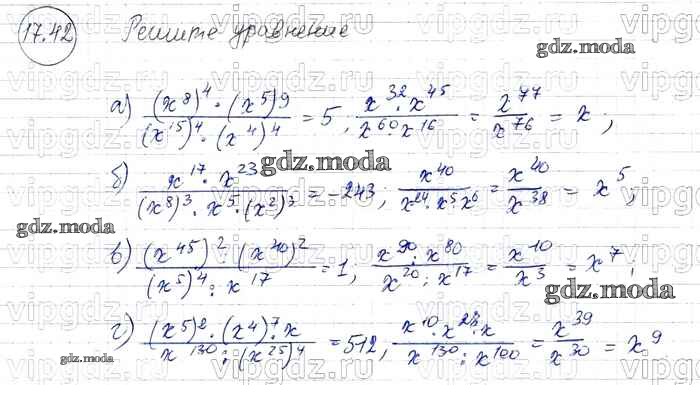 17.42 Решите уравнение
gdz.moda
а) (x^8)^4 · (x^5)^9 / (x^15)^4 · (x^4)^4 = 5; x^32 · x^45 / x^60 · x^16 = x^77 / x^76 = x;
gdz.moda
б) x^17 · x^23 / (x^8)^3 · x^5 · (x^2)^3 = -243; x^40 / x^24 · x^5 x^6 = x^40 / x^38 = x^5;
gdz.moda
в) (x^45)^2 : (x^40)^2 / (x^5)^4 : x^17 = 1; x^90 : x^80 / x^20 : x^17 = x^10 / x^3 = x^7;
gdz.moda
г) (x^5)^2 · (x^4)^7 · x / x^130 : (x^25)^4 = 512, x^10 · x^28 · x / x^130 : x^100 = x^39 / x^30 = x^9
gdz.moda
gdz.moda
vipgdz.ru